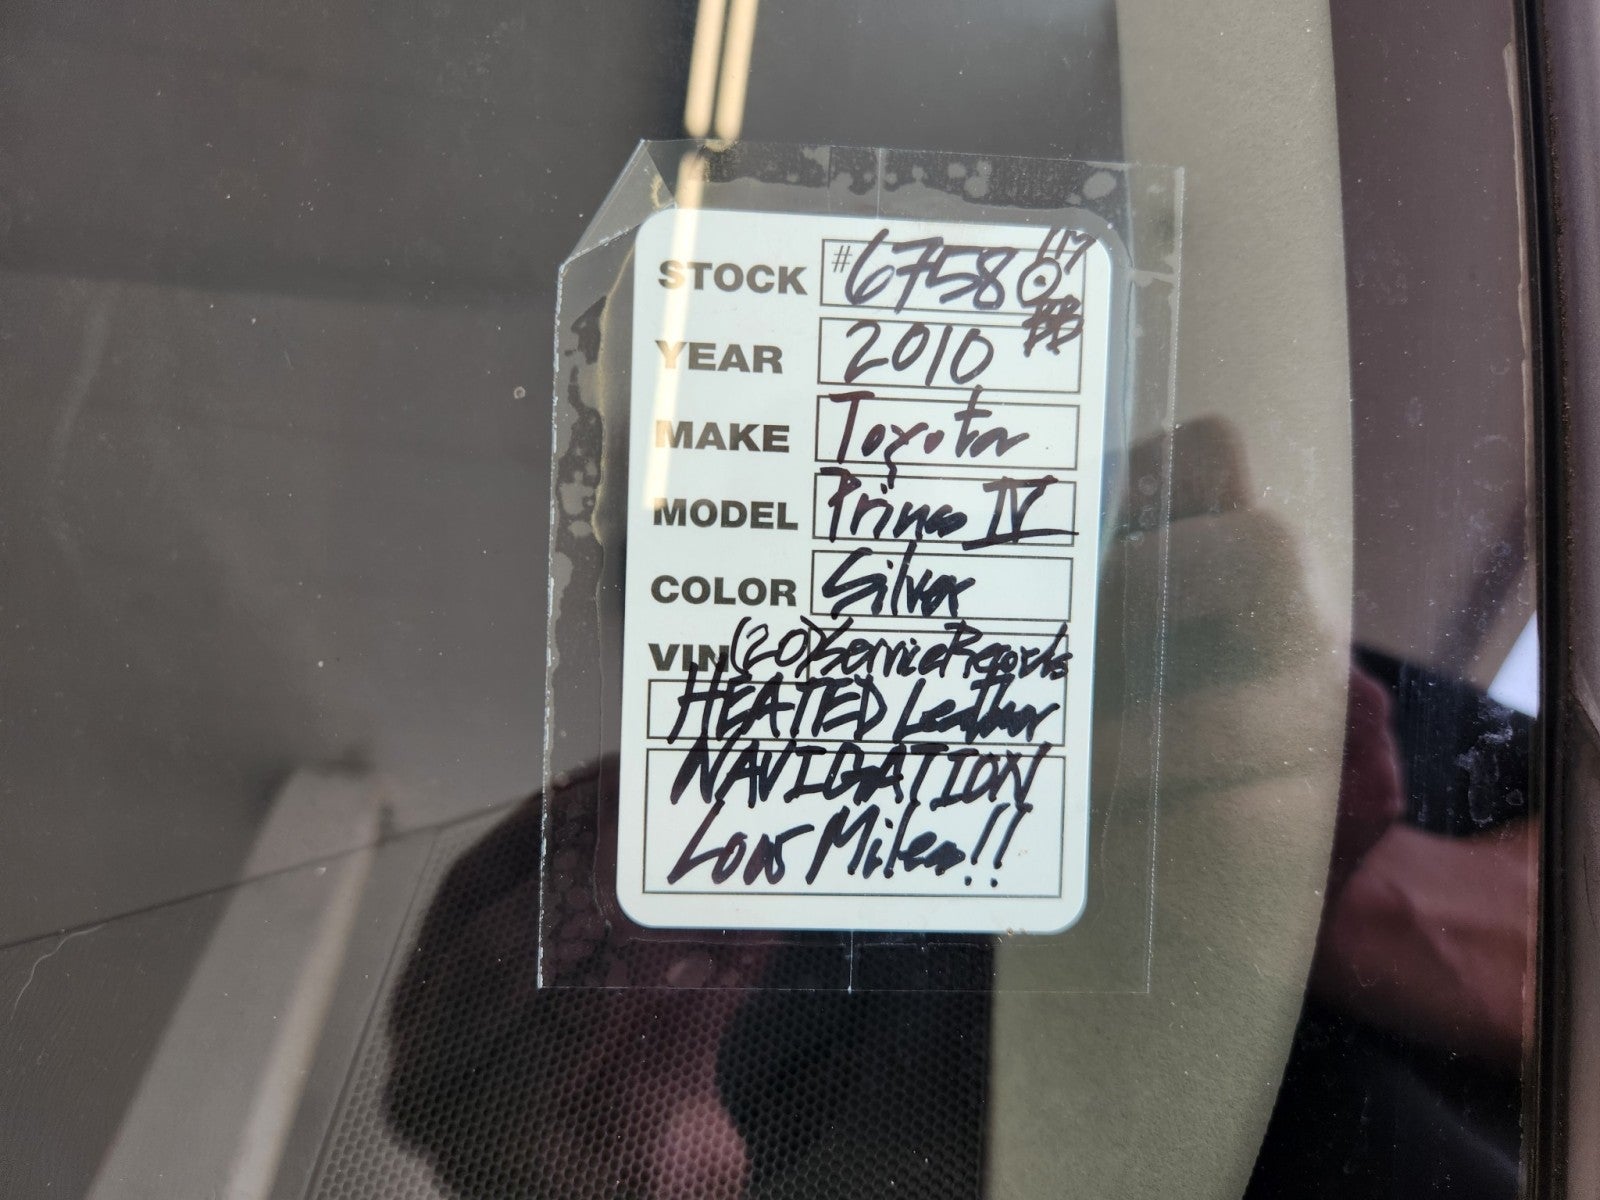 STOCK #6758
YEAR 2010
MAKE Toyota
MODEL Prius IV
COLOR Silver
VIN (20) Service Records
HEATED Leather
NAVIGATION
Low Miles!!